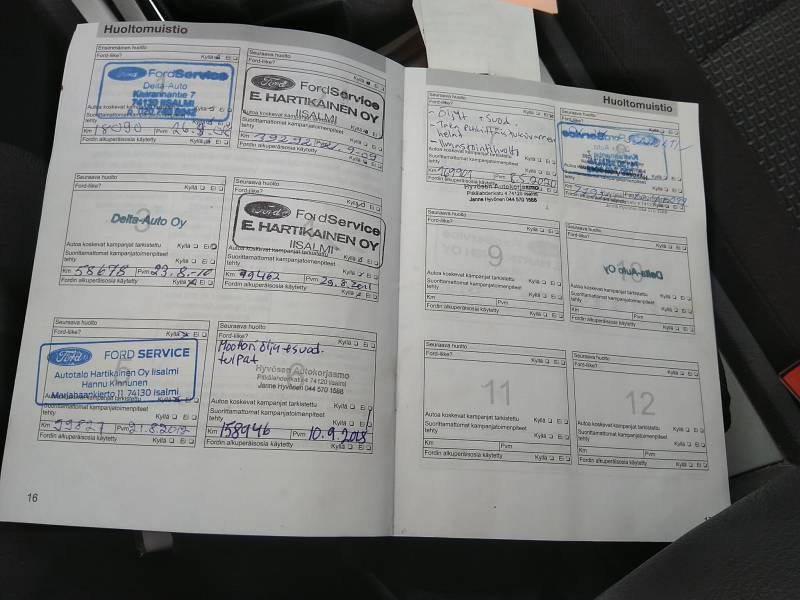 Huoltomuistio
Ensimmäinen huolto
Ford-liike? Kyllä Ei
FordService
Delta-Auto
Kiurannantie 7
74120 IISALMI
Autoa koskevat kampanjat tarkistettu Kyllä Ei
Suorittamattomat kampanjatoimenpiteet
tehty Kyllä Ei
Km Pvm
Fordin alkuperäisosia käytetty Kyllä Ei
Seuraava huolto
Ford-liike? Kyllä Ei
Ford
FordService
E. HARTIKAINEN OY
IISALMI
Km 39292 Pvm
Fordin alkuperäisosia käytetty Kyllä Ei
Seuraava huolto
Ford-liike? Kyllä Ei
3
Delta-Auto Oy
Autoa koskevat kampanjat tarkistettu Kyllä Ei
Suorittamattomat kampanjatoimenpiteet
tehty Kyllä Ei
Km 58678 Pvm 23.8.-10
Fordin alkuperäisosia käytetty Kyllä Ei
Ford
FordService
E. HARTIKAINEN OY
IISALMI
Autoa koskevat kampanjat tarkistettu Kyllä Ei
Suorittamattomat kampanjatoimenpiteet
tehty Kyllä Ei
Km 79462 Pvm 29.8.2011
Fordin alkuperäisosia käytetty Kyllä Ei
Seuraava huolto
Ford-liike? Kyllä Ei
Ford
FORD SERVICE
Autotalo Hartikainen Oy Iisalmi
Hannu Kinnunen
Marjahaankierto 11 74130 Iisalmi
Suorittamattomat kampanjatoimenpiteet
tehty Kyllä Ei
Km 99827 Pvm 21.8.2012
Fordin alkuperäisosia käytetty Kyllä Ei
Seuraava huolto
Ford-liike? Kyllä Ei
Moottoriöljy + suod.
tulpat
Hyvösen Autokorjaamo
Pitkälahdenkatu 4 74120 Iisalmi
Janne Hyvönen 044 570 1588
Autoa koskevat kampanjat tarkistettu Kyllä Ei
Suorittamattomat kampanjatoimenpiteet
tehty Kyllä Ei
Km 158946 Pvm 10.9.2018
Fordin alkuperäisosia käytetty Kyllä Ei
16
Huoltomuistio
Seuraava huolto
Ford-liike? Kyllä Ei
- Öljyt + suod.
- Ilmastointihuolto
Autoa koskevat kampanjat tarkistettu Kyllä Ei
Suorittamattomat kampanjatoimenpiteet
tehty Kyllä Ei
Km 169901 Pvm 8.5.2020
Fordin alkuperäisosia
Hyvösen Autokorjaamo
Pitkälahdenkatu 4 74120 Iisalmi
Janne Hyvönen 044 570 1588
Seuraava huolto
Kyllä Ei
Km Pvm
Fordin alkuperäisosia käytetty
Seuraava huolto
Ford-liike? Kyllä Ei
9
Autoa koskevat kampanjat tarkistettu Kyllä Ei
Suorittamattomat kampanjatoimenpiteet
tehty Kyllä Ei
Km Pvm
Fordin alkuperäisosia käytetty Kyllä Ei
Seuraava huolto
Ford-liike? Kyllä Ei
10
Delta-Auto Oy
Autoa koskevat kampanjat tarkistettu Kyllä Ei
Suorittamattomat kampanjatoimenpiteet
tehty Kyllä Ei
Km Pvm
Fordin alkuperäisosia käytetty Kyllä Ei
Seuraava huolto
Ford-liike? Kyllä Ei
11
Autoa koskevat kampanjat tarkistettu Kyllä Ei
Suorittamattomat kampanjatoimenpiteet
tehty Kyllä Ei
Km Pvm
Fordin alkuperäisosia käytetty Kyllä Ei
Seuraava huolto
Ford-liike? Kyllä Ei
12
Autoa koskevat kampanjat tarkistettu Kyllä Ei
Suorittamattomat kampanjatoimenpiteet
tehty Kyllä Ei
Km Pvm
Fordin alkuperäisosia käytetty Kyllä Ei